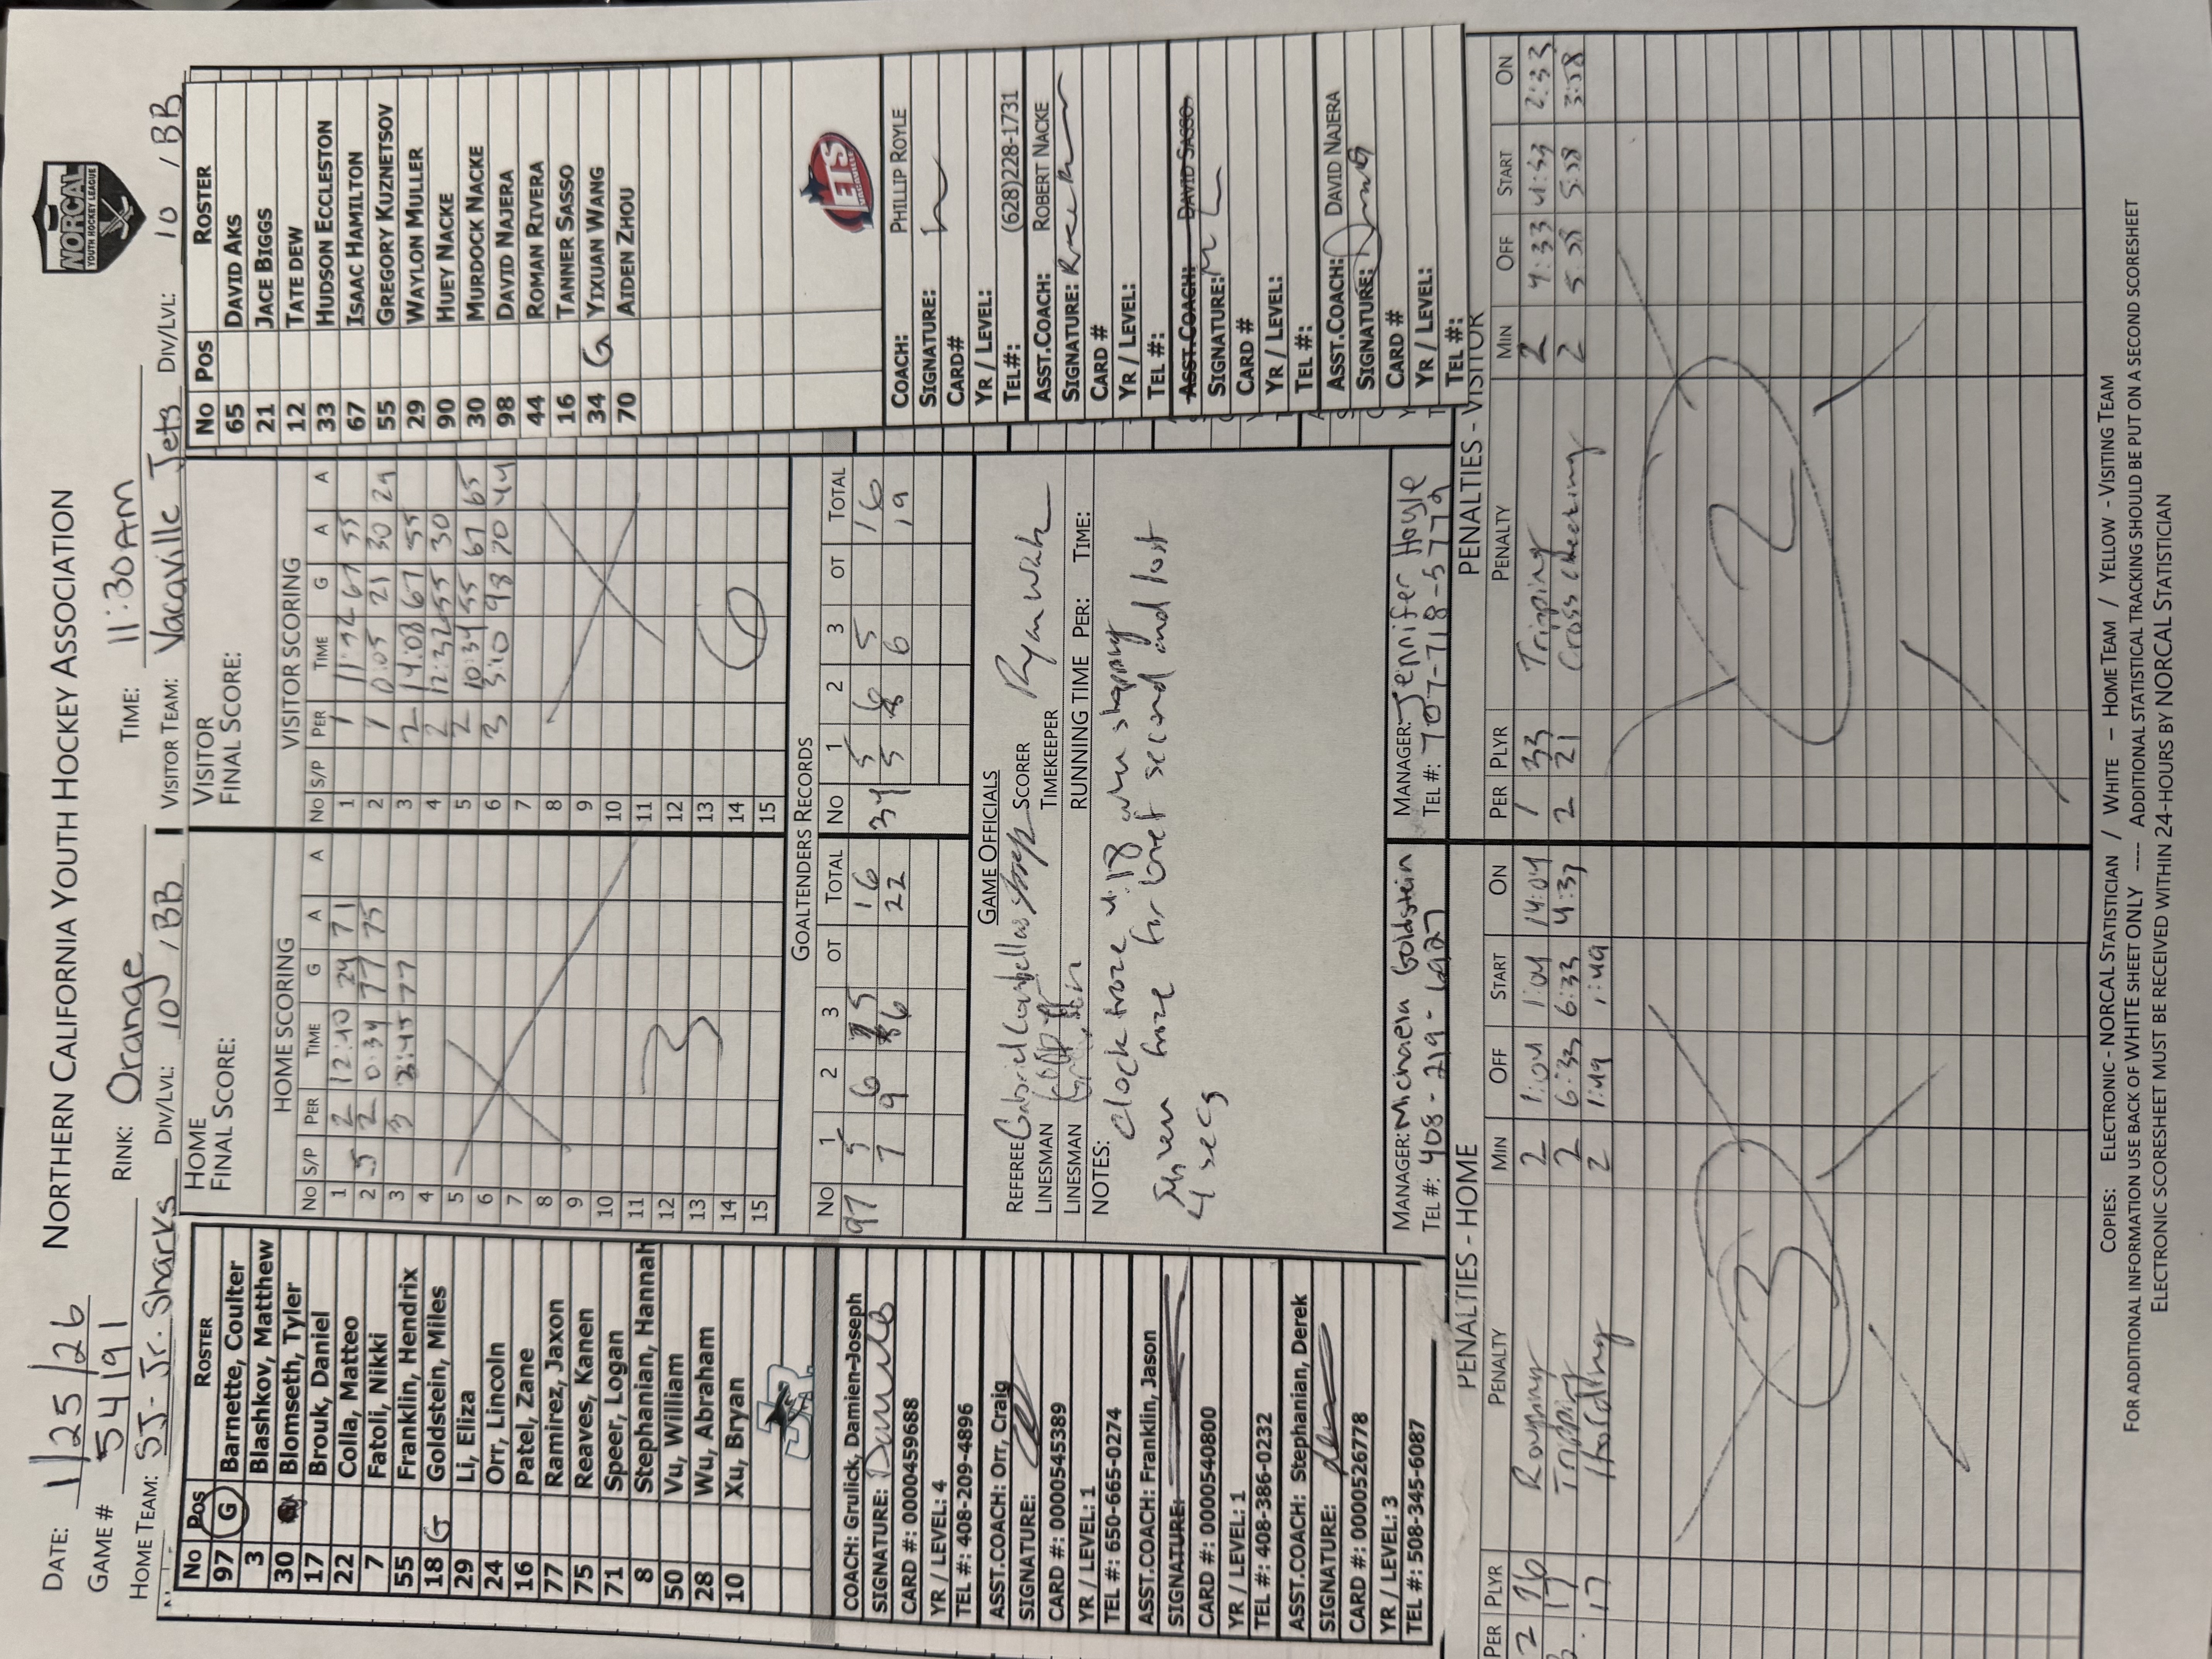 NORTHERN CALIFORNIA YOUTH HOCKEY ASSOCIATION
NORCAL
YOUTH HOCKEY LEAGUE
DATE: 1/25/26
GAME # 5419 RINK: Orange TIME: 11:30AM
HOME TEAM: SJ- Jr. Sharks DIV/LVL: 10U / BB VISITOR TEAM: Vacaville Jets DIV/LVL: 10 / BB
No Pos ROSTER
97 G Barnette, Coulter
3 Blashkov, Matthew
30 Blomseth, Tyler
17 Brouk, Daniel
22 Colla, Matteo
7 Fatoli, Nikki
55 Franklin, Hendrix
18 G Goldstein, Miles
29 Li, Eliza
24 Orr, Lincoln
16 Patel, Zane
77 Ramirez, Jaxon
75 Reaves, Kanen
71 Speer, Logan
8 Stephanian, Hannah
50 Vu, William
28 Wu, Abraham
10 Xu, Bryan
JR
COACH: Grulick, Damien-Joseph
SIGNATURE:
CARD #: 0000459688
YR / LEVEL: 4
TEL #: 408-209-4896
ASST.COACH: Orr, Craig
SIGNATURE:
CARD #: 0000545389
YR / LEVEL: 1
TEL #: 650-665-0274
ASST.COACH: Franklin, Jason
SIGNATURE:
CARD #: 0000540800
YR / LEVEL: 1
TEL #: 408-386-0232
ASST.COACH: Stephanian, Derek
SIGNATURE:
CARD #: 0000526778
YR / LEVEL: 3
TEL #: 508-345-6087
HOME
FINAL SCORE:
HOME SCORING
No S/P PER TIME G A A
1 2 12:10 24 71
2 S 2 0:34 77 75
3 3 77
4
5
6
7
8
9
10
11
12
13
14
15
3
VISITOR
FINAL SCORE:
VISITOR SCORING
No S/P PER TIME G A A
1 1 67 55
2 1 0:05 21 30 29
3 2 14:08 67 55
4 2 12:32 55 30
5 2 10:34 55 67 65
6 3 3:10 98 70 44
7
8
9
10
11
12
13
14
15
6
GOALTENDERS RECORDS
No 1 2 3 OT TOTAL
97 5 6 5 16
7 9 6 22
No 1 2 3 OT TOTAL
34 5 6 5 16
5 6 19
GAME OFFICIALS
REFEREE SCORER Ryan
LINESMAN TIMEKEEPER
LINESMAN RUNNING TIME PER: TIME:
NOTES: Clock froze 4:18
froze for second and lost
4 secs
MANAGER: Michaela Goldstein
TEL #: 408-219-1927
MANAGER: Jennifer Hoyle
TEL #: 707-718-5772
No Pos ROSTER
65 DAVID AKS
21 JACE BIGGS
12 TATE DEW
33 HUDSON ECCLESTON
67 ISAAC HAMILTON
55 GREGORY KUZNETSOV
29 WAYLON MULLER
90 HUEY NACKE
30 MURDOCK NACKE
98 DAVID NAJERA
44 ROMAN RIVERA
16 TANNER SASSO
34 G YIXUAN WANG
70 AIDEN ZHOU
JETS
COACH: PHILLIP ROYLE
SIGNATURE:
CARD#
YR / LEVEL:
TEL#: (628)228-1731
ASST.COACH: ROBERT NACKE
SIGNATURE:
CARD #
YR / LEVEL:
TEL #:
ASST.COACH: DAVID SASSO
SIGNATURE:
CARD #
YR / LEVEL:
TEL #:
ASST.COACH: DAVID NAJERA
SIGNATURE:
CARD #
YR / LEVEL:
TEL #:
PENALTIES - HOME
PER PLYR PENALTY MIN OFF START ON
2 16 Roughing 2 1:04 1:04 14:04
17 Tripping 2 6:33 6:33 4:37
17 Holding 2 1:49 1:49
3
PENALTIES - VISITOR
PER PLYR PENALTY MIN OFF START ON
1 33 Tripping 2 4:33 4:33 2:33
2 21 Cross checking 2 5:58 5:58 3:58
2
COPIES: ELECTRONIC - NORCAL STATISTICIAN / WHITE – HOME TEAM / YELLOW - VISITING TEAM
FOR ADDITIONAL INFORMATION USE BACK OF WHITE SHEET ONLY ---- ADDITIONAL STATISTICAL TRACKING SHOULD BE PUT ON A SECOND SCORESHEET
ELECTRONIC SCORESHEET MUST BE RECEIVED WITHIN 24-HOURS BY NORCAL STATISTICIAN